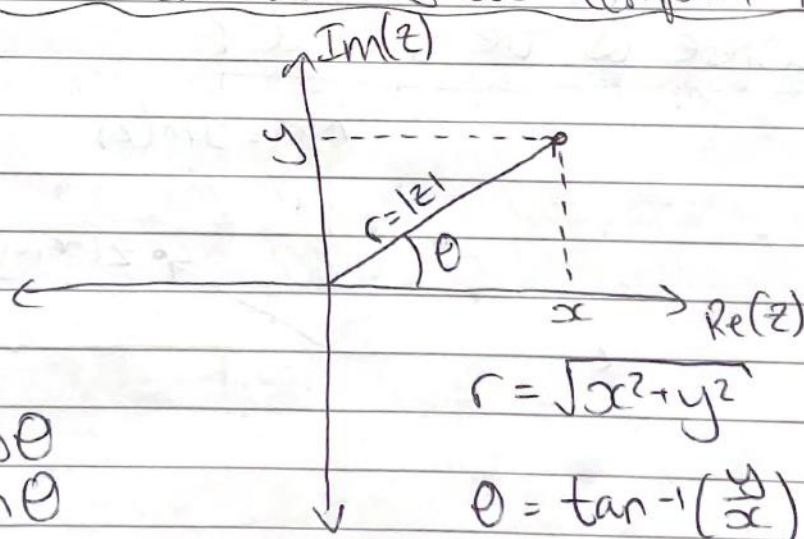 Im(z)
y
r=|z|
θ
x
Re(z)
r = √x²+y²
θ
θ
θ = tan-1(y/x)